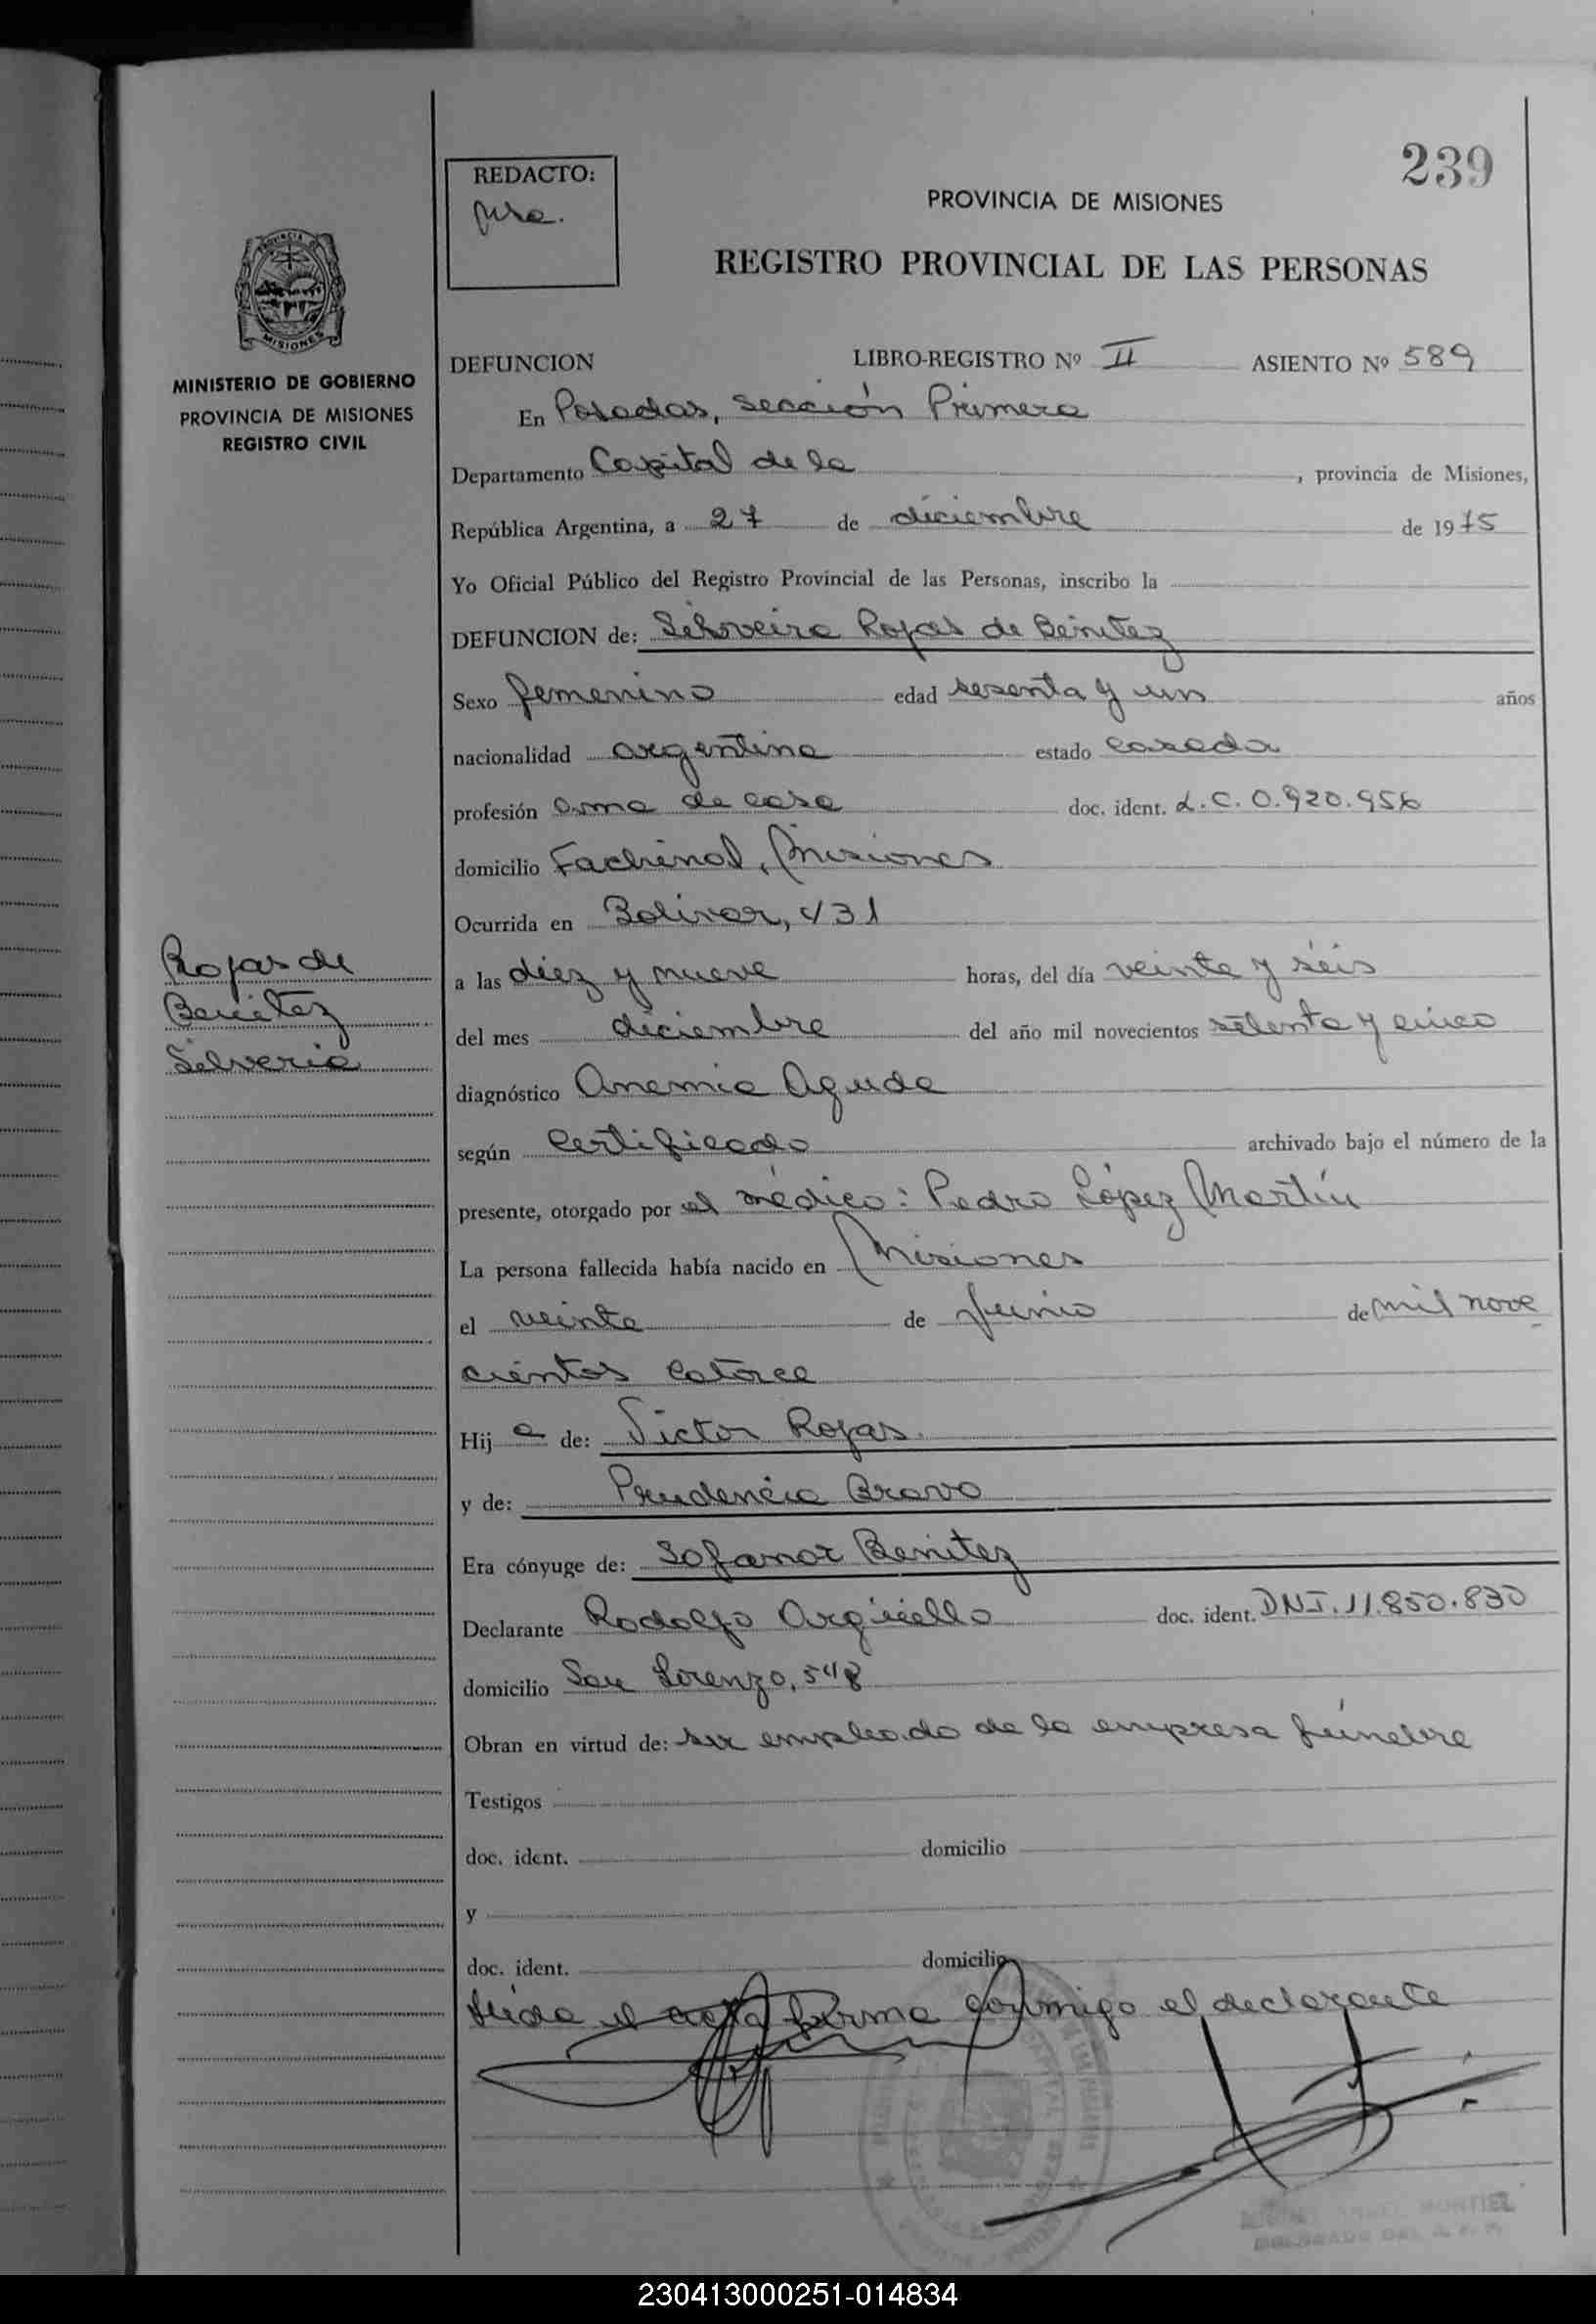 239
REDACTO:
PROVINCIA DE MISIONES
REGISTRO PROVINCIAL DE LAS PERSONAS
PROVINCIA DE
MISIONES
MINISTERIO DE GOBIERNO
PROVINCIA DE MISIONES
REGISTRO CIVIL
DEFUNCION LIBRO-REGISTRO Nº II ASIENTO Nº 589
En Posadas, sección Primera
Departamento Capital de la , provincia de Misiones,
República Argentina, a 27 de diciembre de 1975
Yo Oficial Público del Registro Provincial de las Personas, inscribo la
DEFUNCION de: Rojas de Benitez
Sexo femenino edad sesenta y un años
nacionalidad argentina estado casada
profesión ama de casa doc. ident. L.C. 0.920.956
domicilio Fachinal, Misiones
Ocurrida en Bolivar, 431
a las diez y nueve horas, del día veinte y seis
del mes diciembre del año mil novecientos setenta y cinco
Rojas de
Benitez
Silveria
diagnóstico Anemia Aguda
según certificado archivado bajo el número de la
presente, otorgado por el médico: Pedro López Martín
La persona fallecida había nacido en Misiones
el veinte de junio de mil nove
cientos catorce
Hij a de: Victor Rojas.
y de: Prudencia Bravo
Era cónyuge de: Sofanor Benitez
Declarante Rodolfo Argüello doc. ident. DNI. 11.850.830
domicilio San Lorenzo, 548
Obran en virtud de: ser empleado de la empresa fúnebre
Testigos
doc. ident. domicilio
y
doc. ident. domicilio
Leída el acta firma conmigo el declarante
MONTIEL
230413000251-014834